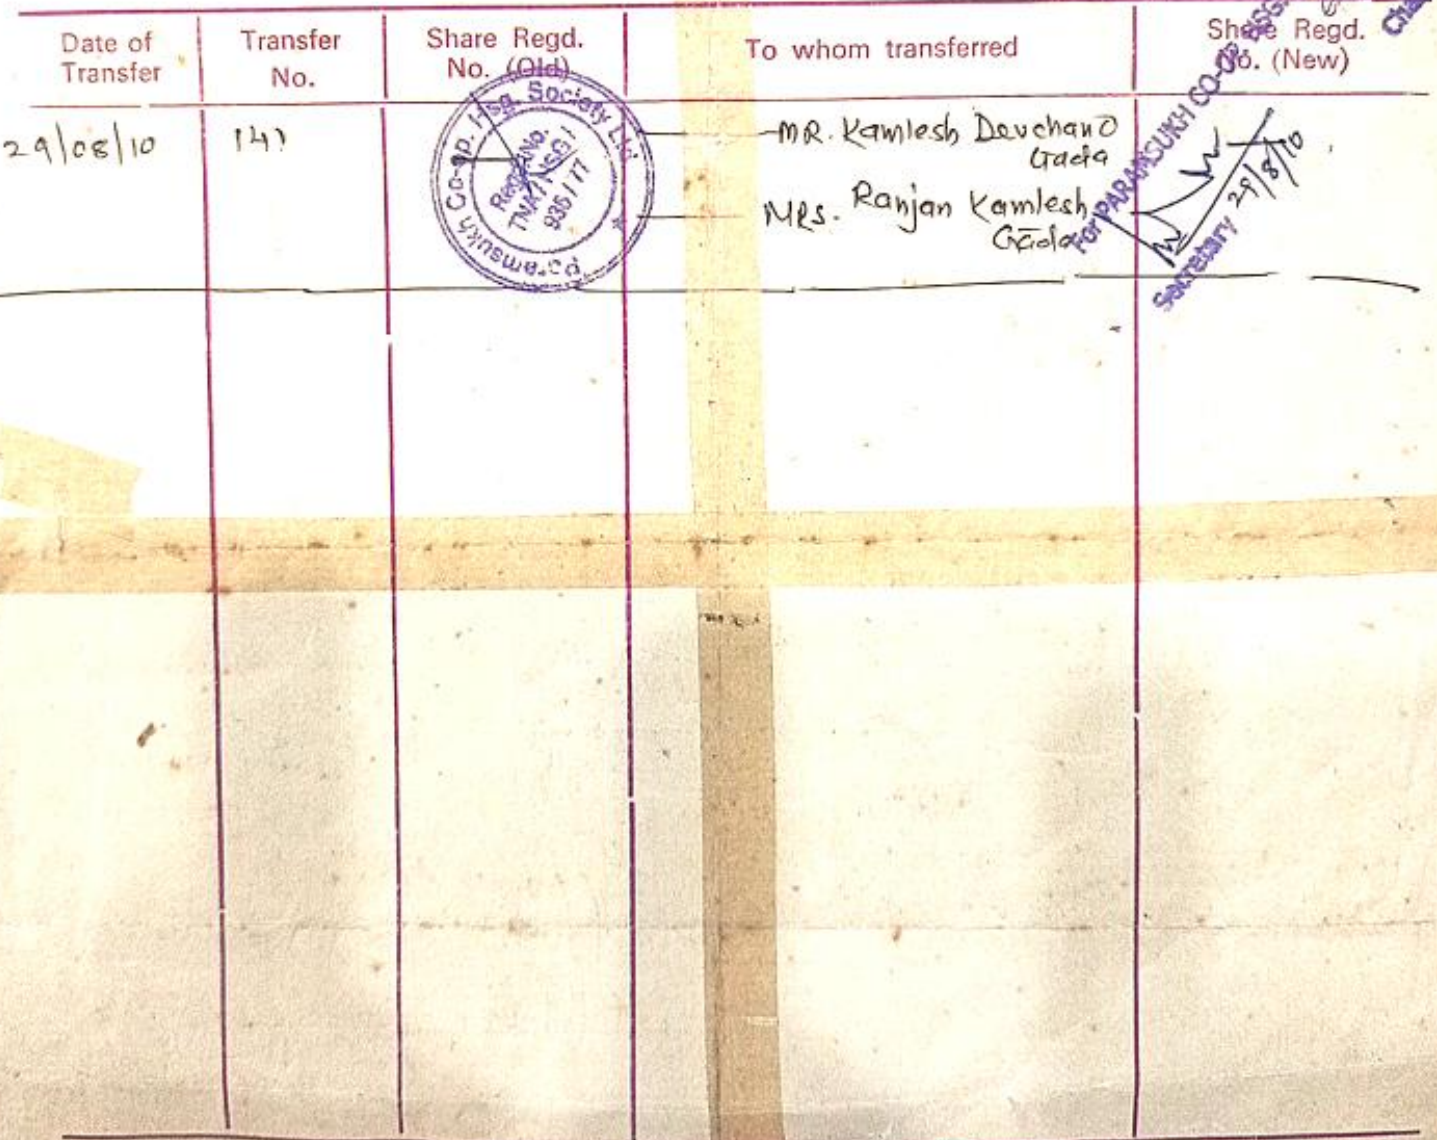 Date of
Transfer
Transfer
No.
Share Regd.
No. (Old)
To whom transferred
Share Regd.
No. (New)
29/08/10
141
Paramsukh Co-op. Hsg. Society Ltd.
Regd. No.
935 / 77
MR. Kamlesh Devchand
Gada
MRS. Ranjan Kamlesh
Gada
For PARAMSUKH CO-OP. HSG.
29/8/10
Secretary